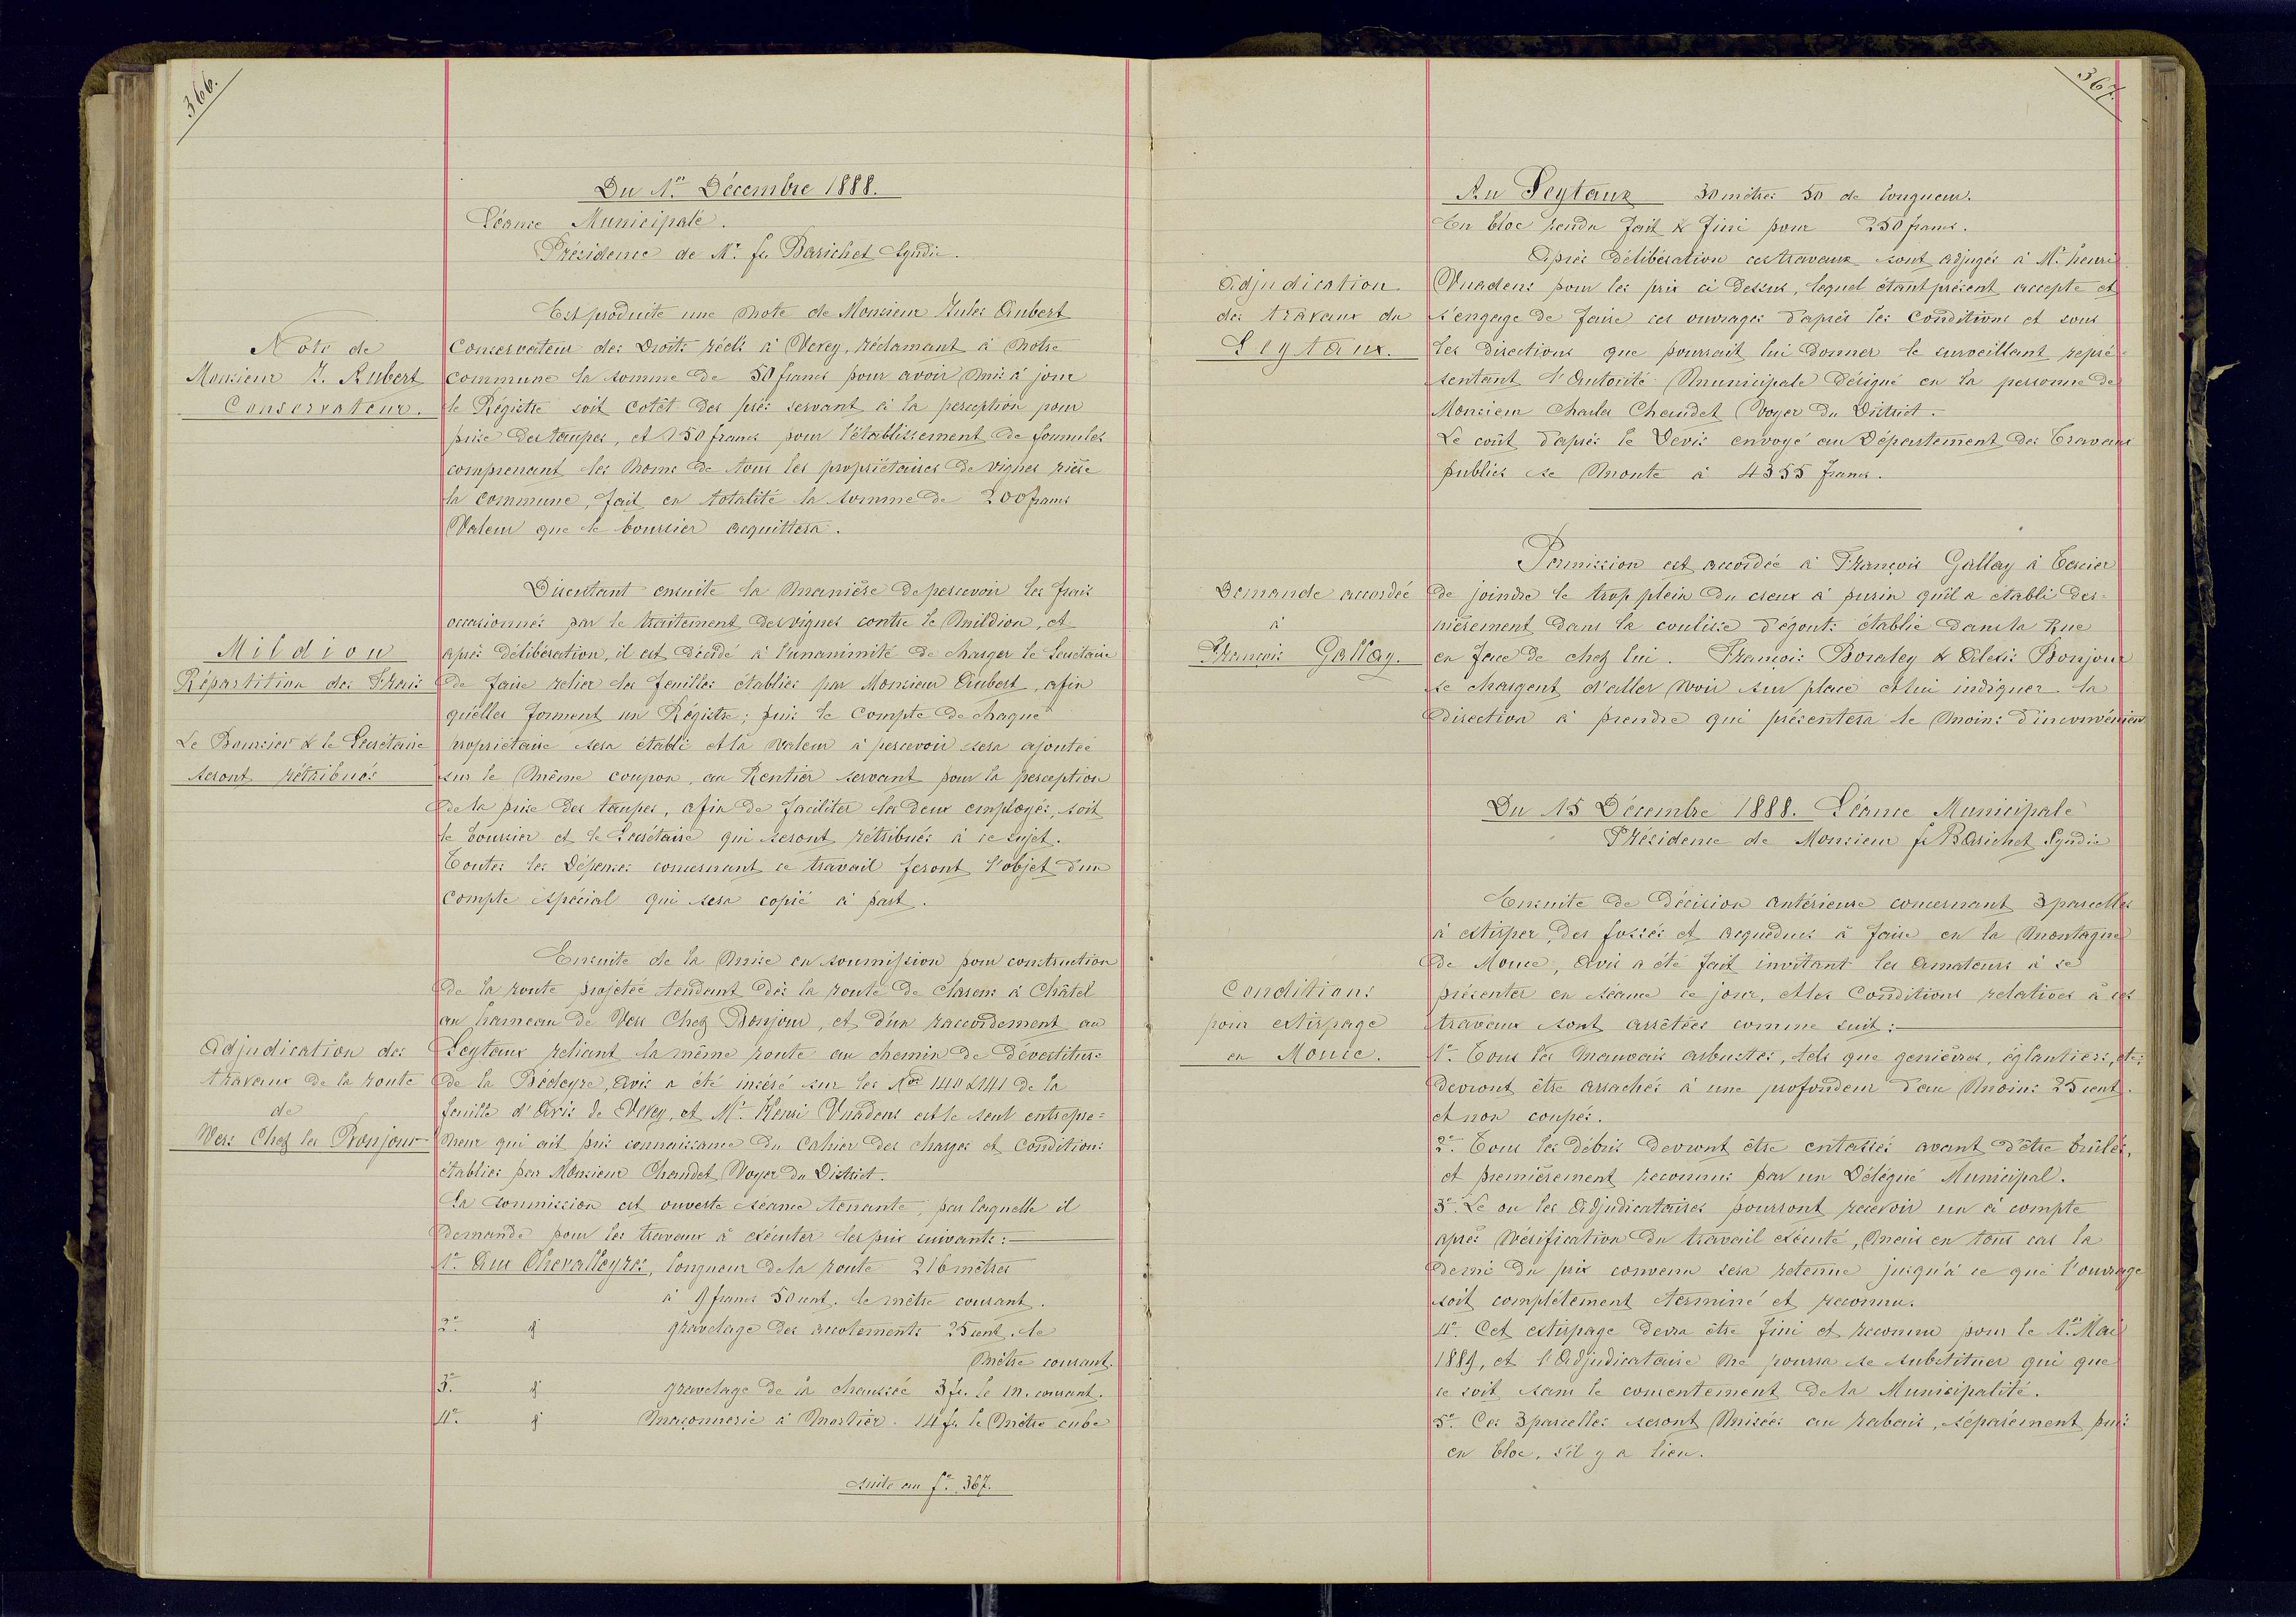 366.
Du 1er Décembre 1888.
Séance Municipale.
Présidence de Mr. fs Barichet Syndic.
Est produite une Note de Monsieur Jules Aubert
Note de
Monsieur J. Aubert
Conservateur.
Conservateur des Droits réels à Vevey, réclamant à Notre
commune la somme de 50 francs pour avoir Mis à jour
le Régistre soit cotêt des prés servant à la perception pour
prise des taupes, et 150 francs pour l'établissement de formules
comprenant les Noms de tous les propriétaires de vignes rière
la commune, fait en totalité la somme de 200 francs
Valeur que le boursier acquittera.
Discutant ensuite la Manière de percevoir les frais
occasionnés par le traitement des vignes contre le Mildiou, et
Mildiou
Répartition des Frais
Le Boursier & le Secrétaire
seront rétribués
après délibération, il est décidé à l'unanimité de charger le Secrétaire
de faire relier les feuilles établies par Monsieur Aubert, afin
qu'elles forment un Régistre; puis le Compte de chaque
propriétaire sera établi et la valeur à percevoir sera ajoutée
sur le Même coupon, au Rentier servant pour la perception
de la prise des taupes, afin de faciliter les deux employés, soit
le boursier et le Secrétaire qui seront rétribués à ce sujet.
Toutes les Dépenses concernant ce travail feront l'objet d'un
Compte spécial qui sera copié à part.
Ensuite de la Mise en soumission pour construction
de la route projetée tendant dès la route de Clarens à Châtel
au hameau de Vers Chez Bonjour, et d'un raccordement au
Adjudication des
travaux de la route
de
Vers Chez les Bonjour
Seytaux reliant la même route au chemin de dévestiture
de la Bédeyre, Avis a été inséré sur les Nos 140 & 141 de la
feuille d'Avis de Vevey, et Mr. Henri Vuadens est le seul entrepre=
Neur qui ait pris connaissance du Cahier des charges et Conditions
établies par Monsieur Chaudet Voyer du District.
La soumission est ouverte séance tenante, par laquelle il
demande pour les travaux à exécuter les prix suivants:
1o. Aux Chevalleyres, longueur de la route 216 mètres
à 9 francs 50 cent. le mètre courant.
2o. d° gravelage des accotements 25 cent. le
Mètre courant.
3o. d° gravelage de la chaussée 3 fr. le m. courant.
4o. d° Maçonnerie à Mortier. 14 fr. le Mètre cube
suite au fo. 367.
367.
Au Seytaux 30 mètres 50 de longueur.
En bloc rendu fait & fini pour 250 francs.
Après délibération ces travaux sont adjugés à Mr. henri
Adjudication
des travaux du
Seytaux.
Vuadens pour les prix ci dessus, lequel étant présent accepte et
s'engage de faire ces ouvrages d'après les Conditions et sous
les directions que pourrait lui donner le surveillant repré=
sentant l'Autorité Municipale désigné en la personne de
Monsieur Charles Chaudet Voyer du District.
Le coût d'après le Devis envoyé au Département des Travaux
publics se Monte à 4355 francs.
Permission est accordée à François Gallay à Tercier
Demande accordée
à
François Gallay.
de joindre le trop plein du creux à purin qu'il a établi der=
nièrement dans la coulisse d'égouts établie dans la Rue
en face de chez lui. François Boraley & Alexis Bonjour
se chargent d'aller voir sur place et lui indiquer la
direction à prendre qui présentera le Moins d'inconvénien
Du 15 Décembre 1888. Séance Municipale
Présidence de Monsieur fs Barichet Syndic
Ensuite de décision antérieure concernant 3 parcelles
à extirper, des fossés et acqueducs à faire en la Montagne
de Mouce, Avis a été fait invitant les Amateurs à se
Conditions
pour extirpage
en Mouce.
présenter en séance ce jour, et les Conditions relatives à ces
travaux sont arrêtées comme suit:
1o. Tous les Mauvais arbustes, tels que genièvres, églantiers, etc:
devront être arrachés à une profondeur d'au Moins 25 cent.
et non coupés.
2o. Tous les débris devront être entassés avant d'être brûlés,
et premièrement reconnus par un Délégué Municipal.
3o. Le ou les Adjudicataires pourront recevoir un à compte
après Vérification du travail exécuté, Mais en tous cas la
demi du prix convenu sera retenue jusqu'à ce que l'ouvrage
soit complétement terminé et reconnu.
4o. Cet extirpage devra être fini et reconnu pour le 1er Mai
1889, et l'Adjudicataire Ne pourra se substituer qui que
ce soit sans le consentement de la Municipalité.
5o. Ces 3 parcelles seront Misées au rabais, séparément puis
en bloc, s'il y a lieu.